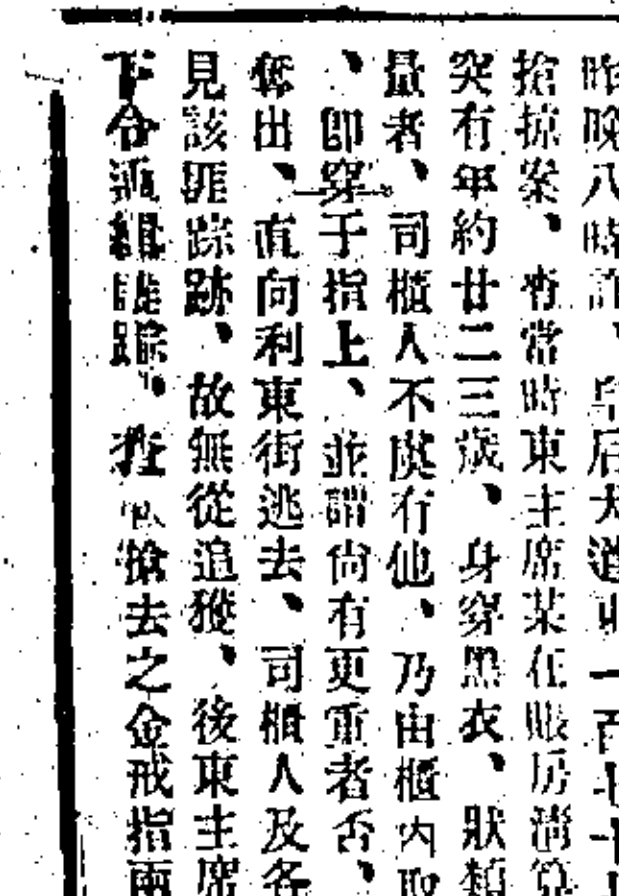 昨晚八時許、皇后大道中一百七十
搶掠案、查當時東主席某在賬房清算
突有年約廿二三歲、身穿黑衣、狀類
量者、司櫃人不虞有他、乃由櫃內取
、卽穿于指上、並謂尙有更重者否、
奪出、直向利東街逃去、司櫃人及各
見該匪踪跡、故無從追獲、後東主席
下令 搶去之金戒指兩